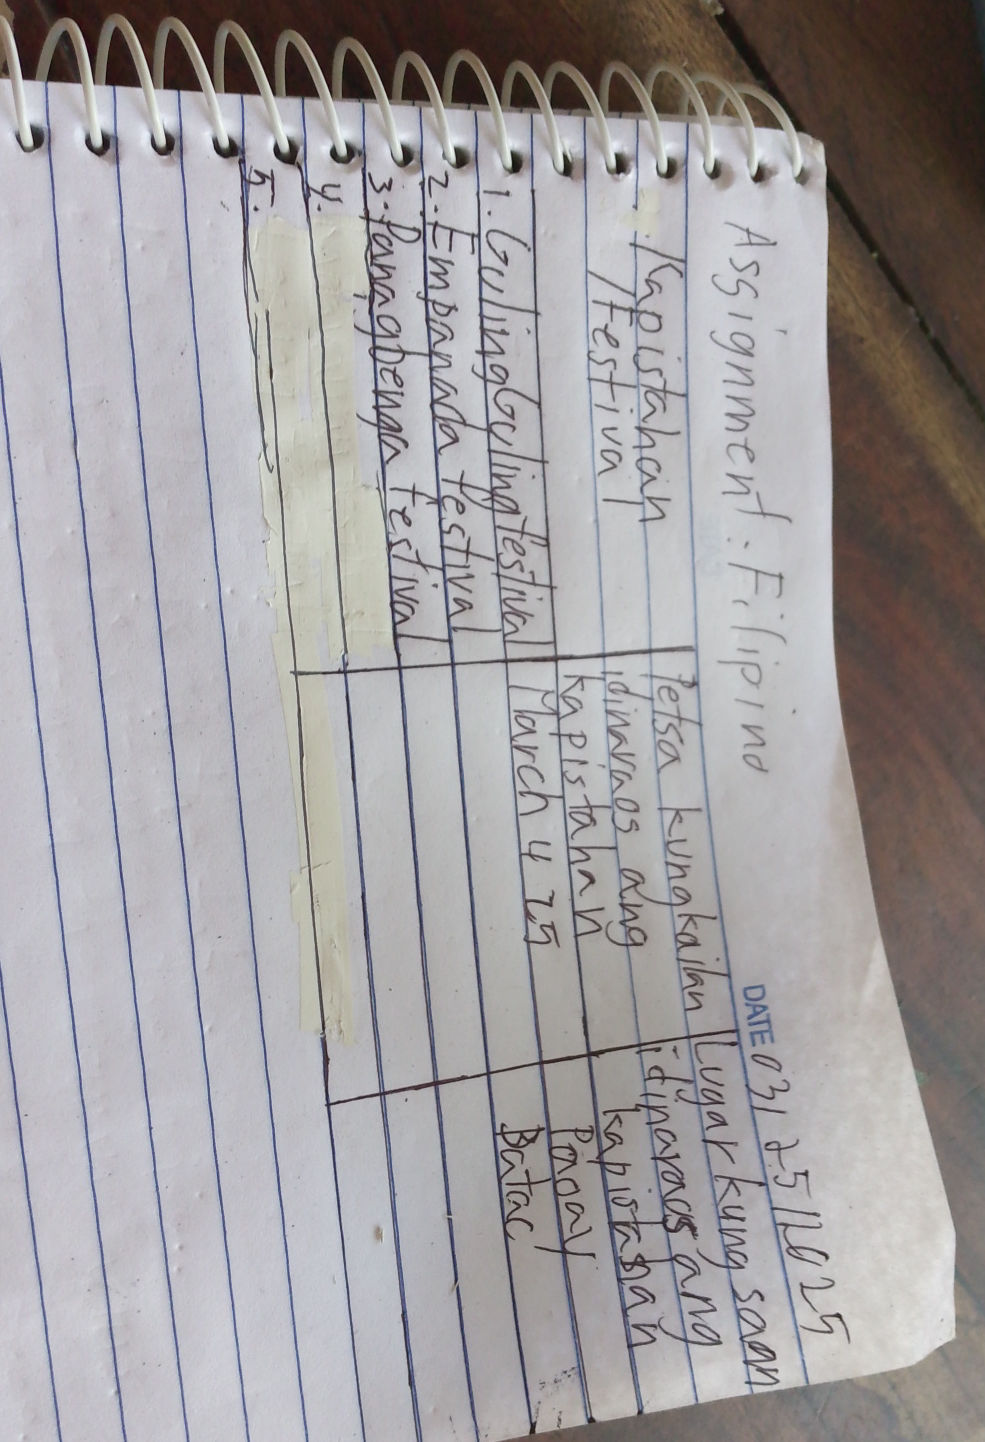 DATE 03/25/2025
Assignment: Filipino
Kapistahan
/Festival
Petsa kungkailan
idinaraos ang
kapistahan
Lugar kung saan
idinaraos ang
kapistahan
1. GulingGulingfestival
March 4 25
Paoay
2. Empanada festival
Batac
3. Panagbenga festival
4.
5.